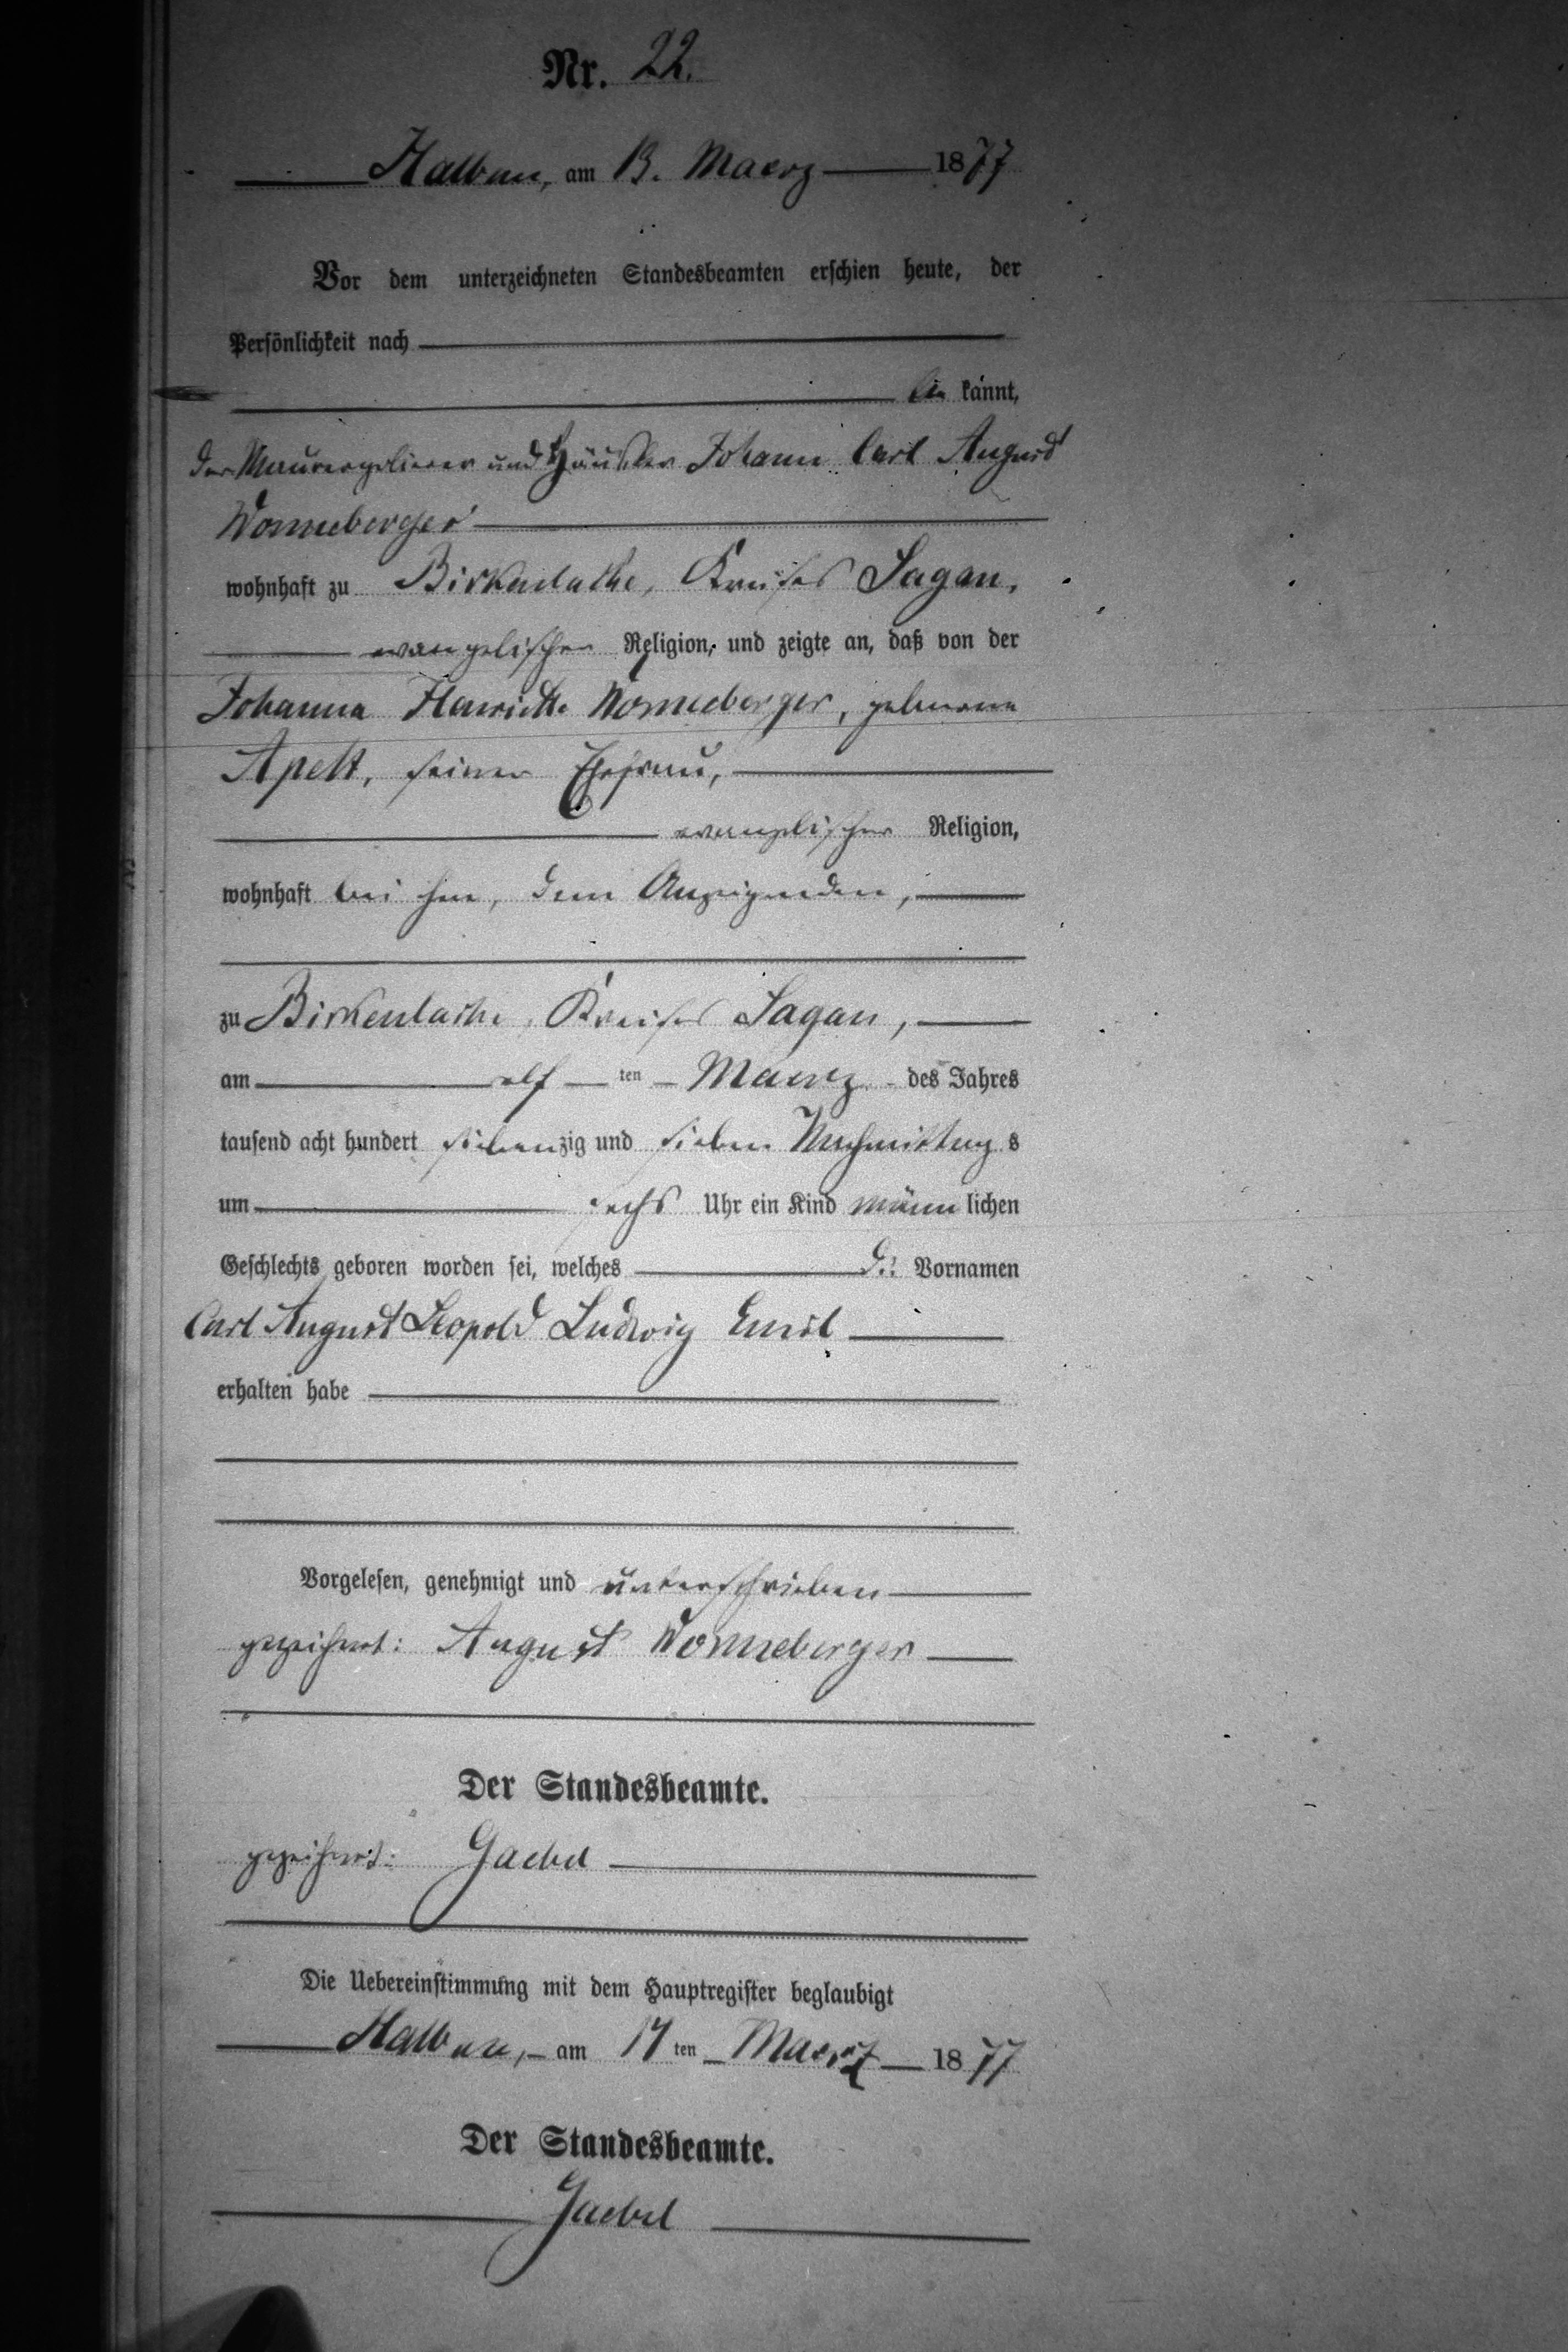 Nr. 22.
Halbau, am 13. Maerz 1877
Vor dem unterzeichneten Standesbeamten erschien heute, der
Persönlichkeit nach
be kannt,
der Maurergeselle und Häusler Johann Carl August
Wonneberger
wohnhaft zu Birkenlache, Kreises Sagan,
evangelischer Religion, und zeigte an, daß von der
Johanna Henriette Wonneberger, geborene
Apelt, seiner Ehefrau,
evangelischer Religion,
wohnhaft bei ihm, dem Anzeigenden,
zu Birkenlache, Kreises Sagan,
am elf ten Maerz des Jahres
tausend acht hundert siebenzig und sieben Nachmittag s
um sechs Uhr ein Kind männ lichen
Geschlechts geboren worden sei, welches die Vornamen
Carl August Leopold Ludwig Emil
erhalten habe
Vorgelesen, genehmigt und unterschrieben
gezeichnet: August Wonneberger
Der Standesbeamte.
gezeichnet: Gaebel
Die Uebereinstimmung mit dem Hauptregister beglaubigt
Halbau, am ten Maerz 1877
Der Standesbeamte.
Gaebel